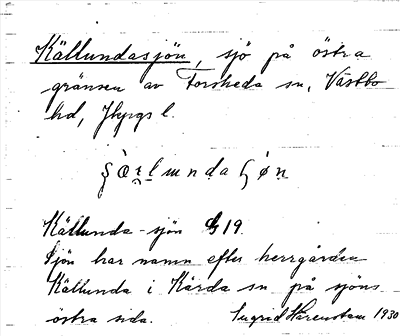 Källundasjön, sjö på östra
gränsen av Forsheda sn, Västbo
hd, Jkpgs l.
Källunda-sjön G 19.
Sjön har namn efter herrgården
Källunda i Kärda sn på sjöns
östra sida. Ingrid Härenstam 1930